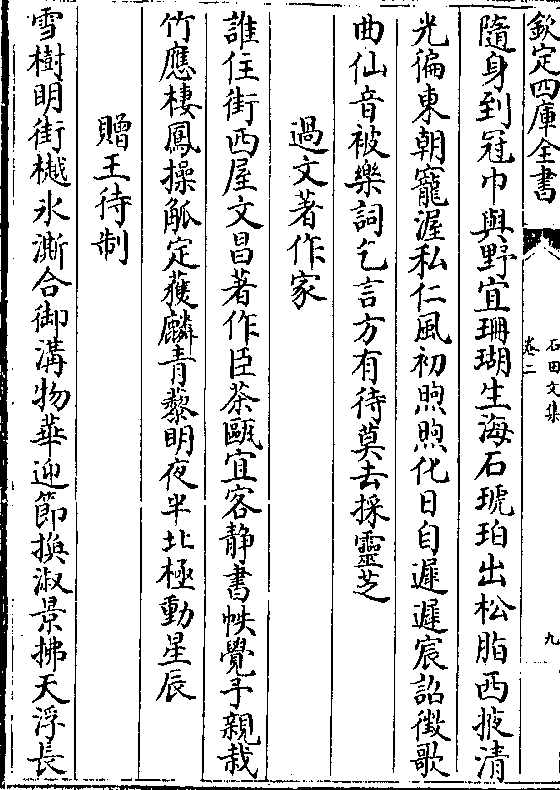 欽定四庫全書
石田文集
卷二
九
隨身到冠巾與野宜珊瑚生海石琥珀出松脂西掖清
光徧東朝寵渥私仁風初煦煦化日自遲遲宸詔徵歌
曲仙音被樂詞乞言方有待莫去採靈芝
過文著作家
誰住街西屋文昌著作臣茶甌宜客静書帙覺手親栽
竹應棲鳳操觚定獲麟青藜明夜半北極動星辰
贈王待制
雪樹明街樾氷澌合御溝物華迎節換淑景拂天浮長